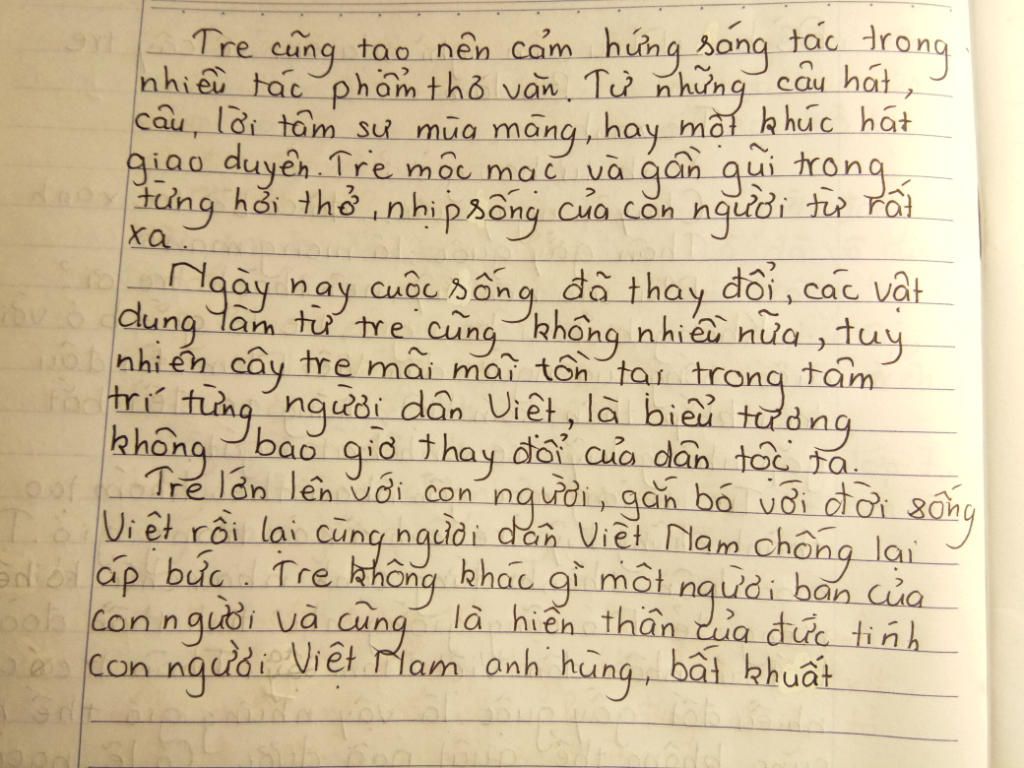 Tre cũng tạo nên cảm hứng sáng tác trong
nhiều tác phẩm thơ văn. Từ những câu hát,
câu, lời tâm sự mùa màng, hay một khúc hát
giao duyên. Tre mộc mạc và gần gũi trong
từng hơi thở, nhịp sống của con người từ rất
xa.
Ngày nay cuộc sống đã thay đổi, các vật
dụng làm từ tre cũng không nhiều nữa, tuy
nhiên cây tre mãi mãi tồn tại trong tâm
trí từng người dân Việt, là biểu tượng
không bao giờ thay đổi của dân tộc ta.
Tre lớn lên với con người, gắn bó với đời sống
Việt rồi lại cùng người dân Việt Nam chống lại
áp bức. Tre không khác gì một người bạn của
con người và cũng là hiện thân của đức tính
con người Việt Nam anh hùng, bất khuất